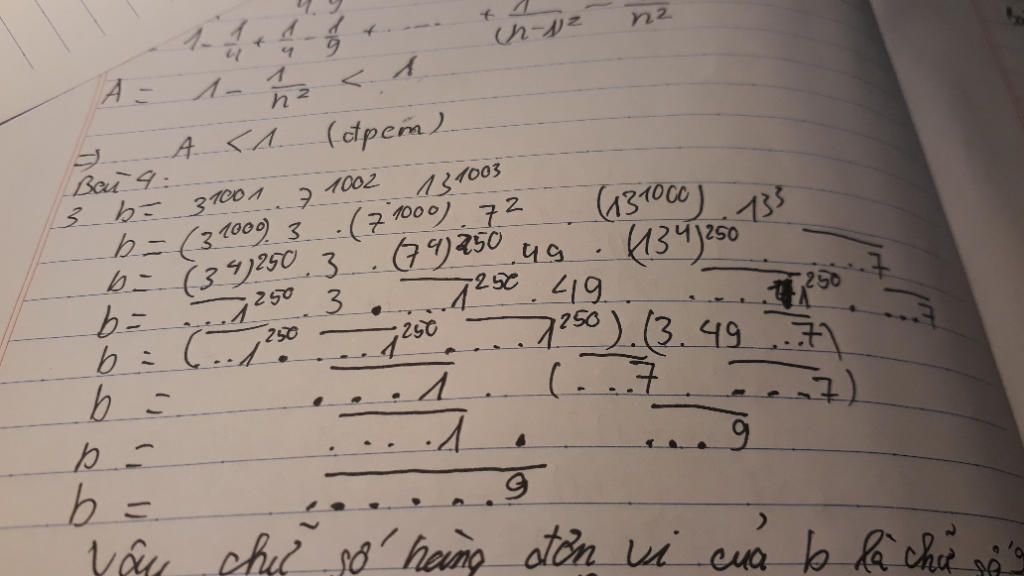 1 - 1/4 + 1/4 - 1/9 + ..... + 1/(n-1)² -
A = 1 - 1/n² < 1
=> A < 1 (đpcm)
Bài 4:
3 b = 3^1001 . 7^1002 13^1003
b = (3^1000) . 3 . (7^1000) . 7² . (13^1000) . 13³
b = (3^4)^250 . 3 . (7^4)^250 . 49 . (13^4)^250 . ...7
b = ...1^250 . 3 . ...1^250 . 49 ....1^250 . ...7
b = (...1^250 . ...1^250 . ...1^250) . (3 . 49 ...7)
b = ....1 . (...7 ....7)
b = ....1 . ...9
b = ......9
Vậy chữ số hàng đơn vị của b là chữ số 9